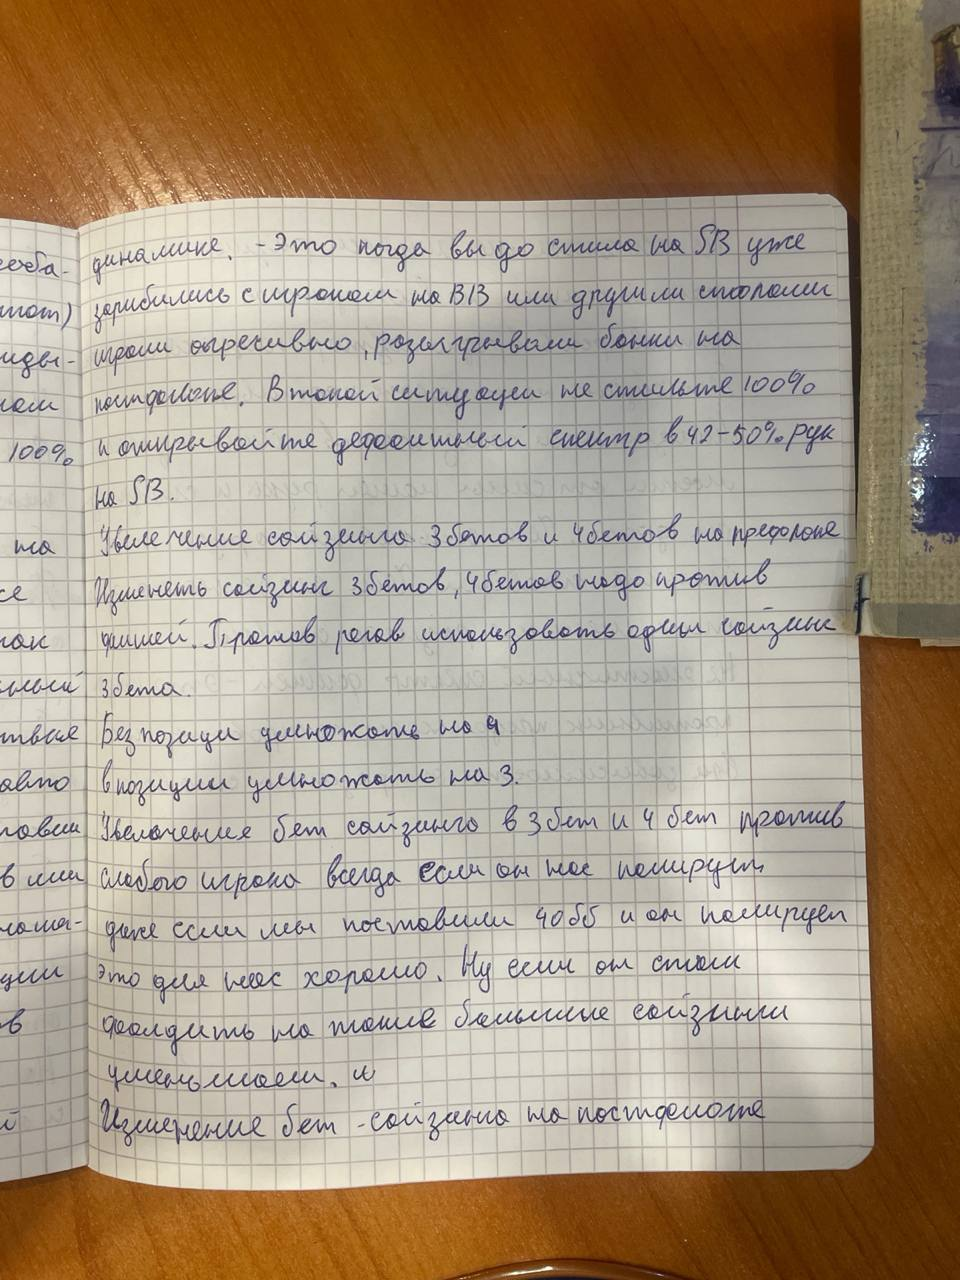 динамике. - Это когда вы до стила на SB уже
зарибились с игроком на BB или другими столами
играли агресивно, разыгрывали банки на
постфлопе. В такой ситуации не стильте 100%
и открывайте дефолтный спектр в 42-50% рук
на SB.
Увеличение сайзинга 3бетов и 4бетов на префлопе
Изменять сайзинг 3бетов, 4бетов надо против
фишей. Против регов использовать один сайзинг
3бета.
Без позици умножать на 4
в позиции умножать на 3.
Увеличение бет сайзинга в 3бет и 4 бет против
слабого игрока всегда если он нас колирует
даже если мы поставили 40бб и он колирует
это для нас хорошо. Ну если он стал
фолдить на такие большие сайзинги
уменьшаем. и
Изменение бет-сайзинга на постфлопе
100%
на